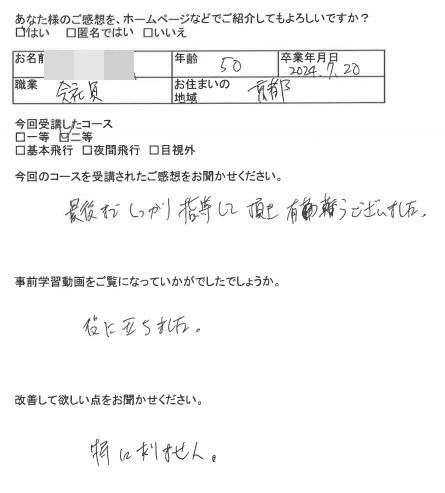 あなた様のご感想を、ホームページなどでご紹介してもよろしいですか？
□はい □匿名ではい □いいえ
お名前 年齢 50 卒業年月日 2024.7.20
職業 会社員 お住まいの地域 京都
今回受講したコース
□一等 ☑二等
□基本飛行 □夜間飛行 □目視外
今回のコースを受講されたご感想をお聞かせください。
最後まで しっかり 指導して 頂き 有難うございました。
事前学習動画をご覧になっていかがでしたでしょうか。
役に立ちました。
改善して欲しい点をお聞かせください。
特に有りません。